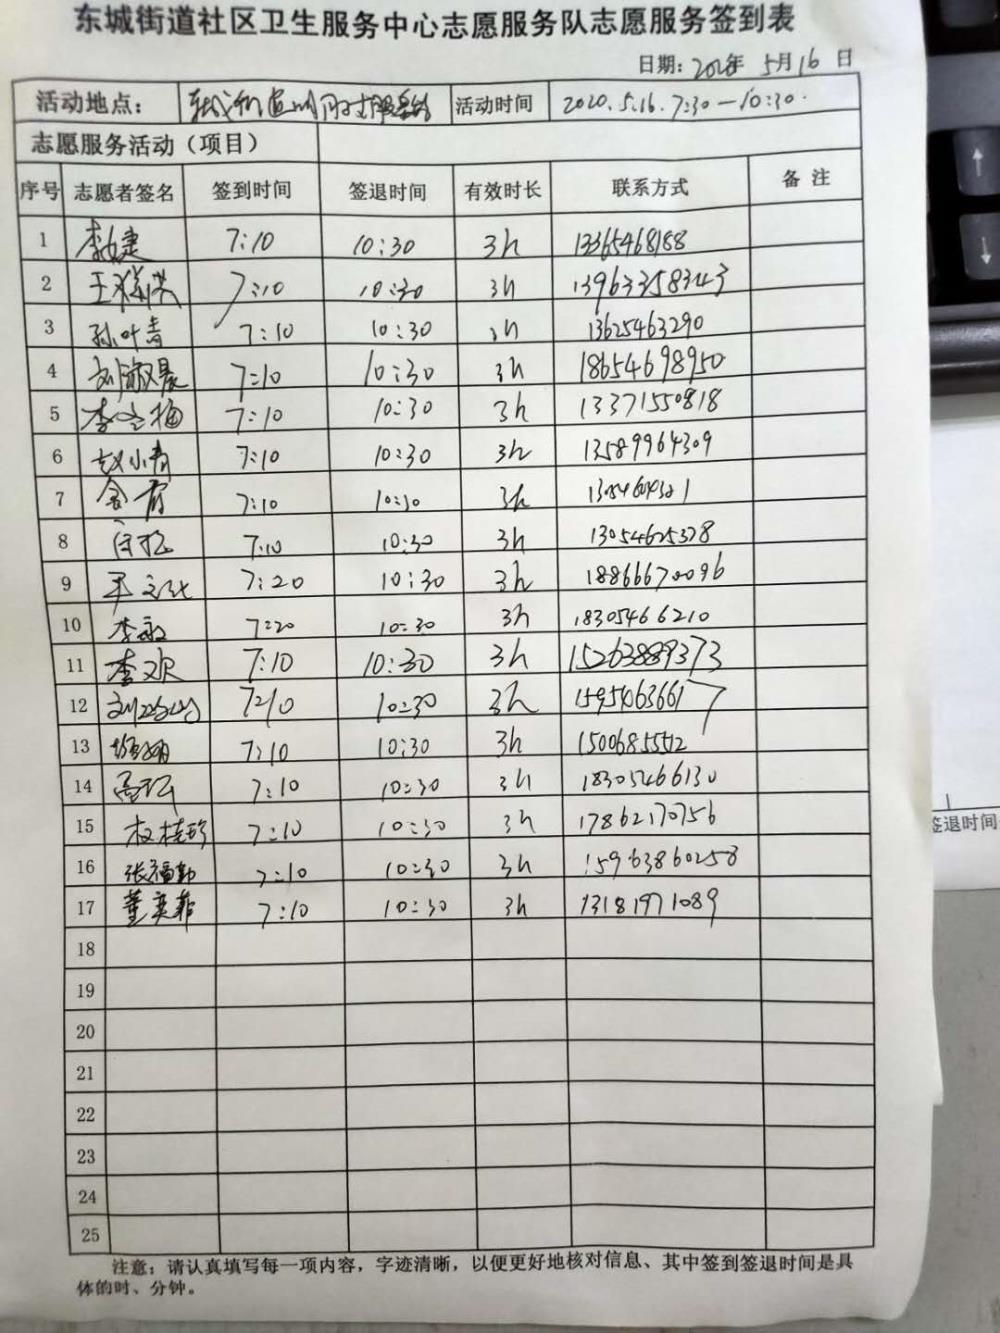 东城街道社区卫生服务中心志愿服务队志愿服务签到表
日期: 2020年 5月16日
活动地点: 活动时间 2020.5.16. 7:30—10:30.
志愿服务活动（项目）
序号 志愿者签名 签到时间 签退时间 有效时长 联系方式 备注
1 李建 7:10 10:30 3h 13365468188
2 王 7:10 10:30 3h 13963358343
3 孙叶青 7:10 10:30 3h 13625463290
4 刘淑晨 7:10 10:30 3h 18654698950
5 李 梅 7:10 10:30 3h 13371550818
6 赵小青 7:10 10:30 3h 13589964309
7 7:10 10:30 3h
8 7:10 10:30 3h 13054625378
9 7:20 10:30 3h 18866670096
10 李 7:20 10:30 3h 18305466210
11 李欢 7:10 10:30 3h 15263889373
12 刘 7:10 10:30 3h 15954063661
13 7:10 10:30 3h
14 高 7:10 10:30 3h 18305466130
15 权桂珍 7:10 10:30 3h 17862170756
16 张福勤 7:10 10:30 3h 15963860258
17 董奕菲 7:10 10:30 3h 13181971089
18
19
20
21
22
23
24
25
注意：请认真填写每一项内容，字迹清晰，以便更好地核对信息、其中签到签退时间是具
体的时、分钟。
签退时间